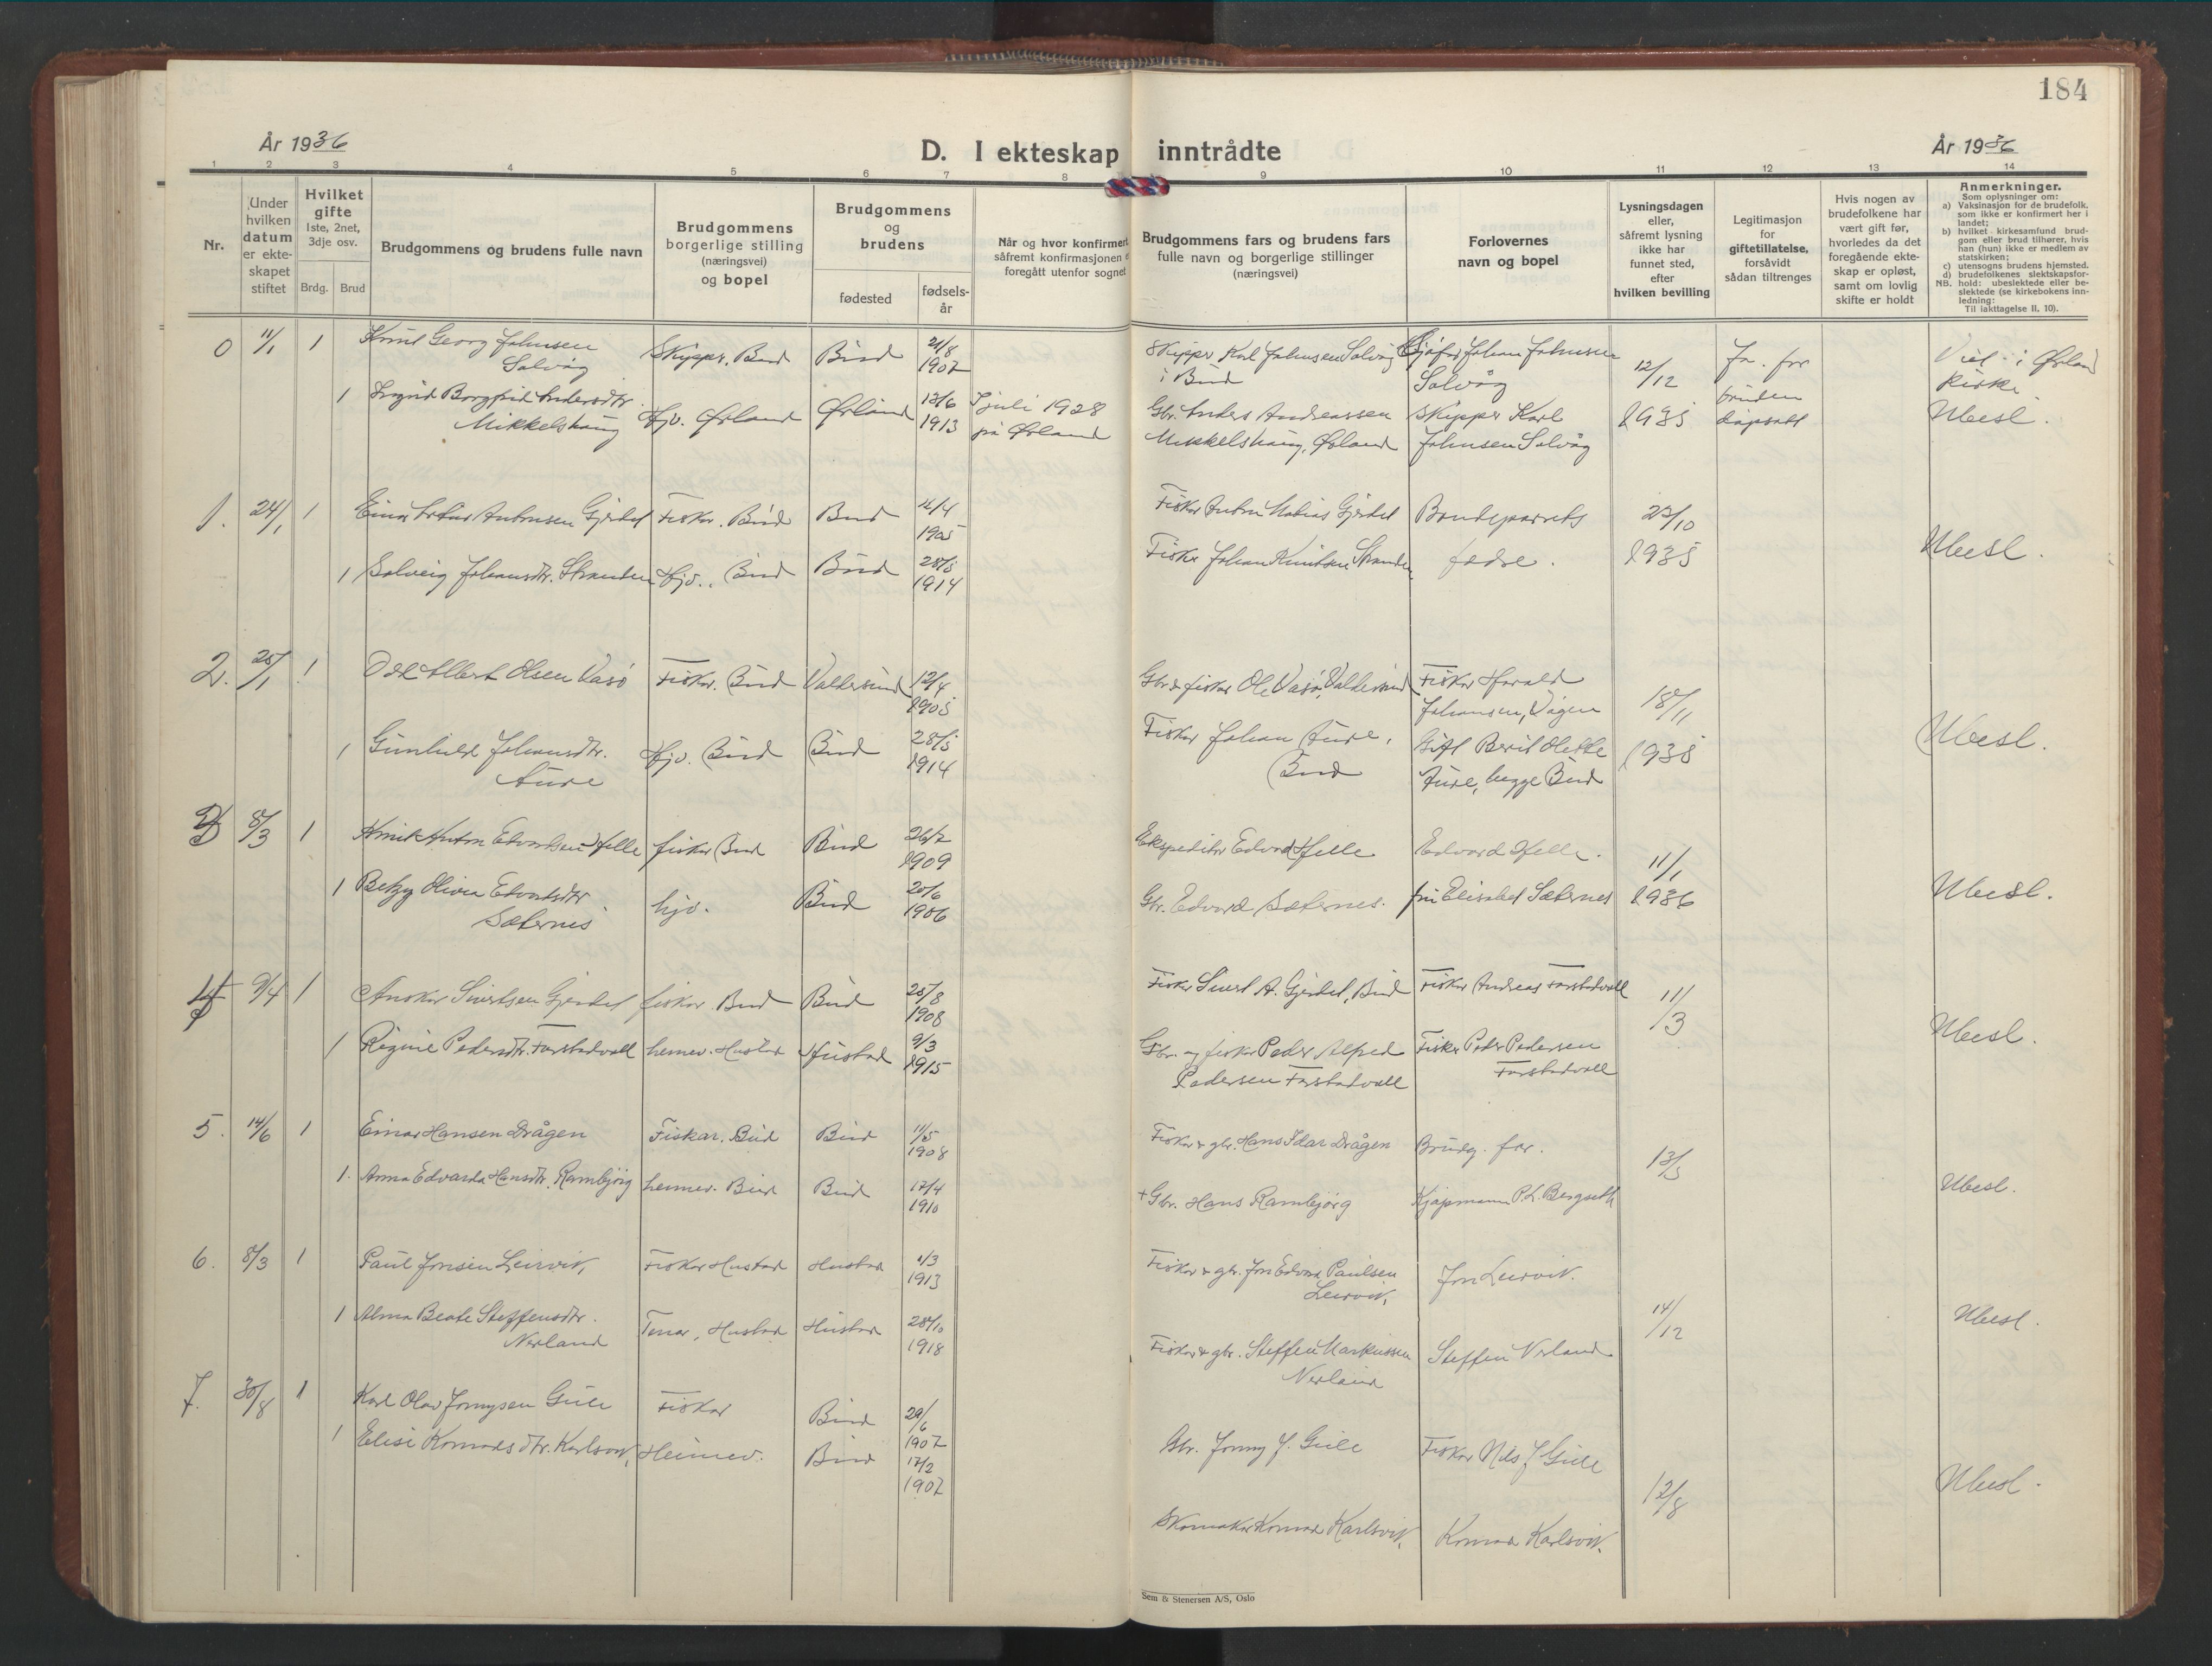 184
År 1936
D. I ekteskap inntrådte
År 1936
1 2 3 4 5 6 7 8 9 10 11 12 13 14
Nr.
Under
hvilken
datum
er ekte-
skapet
stiftet
Hvilket
gifte
1ste, 2net,
3dje osv.
Brdg. Brud
Brudgommens og brudens fulle navn
Brudgommens
borgerlige stilling
(næringsvei)
og bopel
Brudgommens
og
brudens
fødested
fødsels-
år
Når og hvor konfirmert
såfremt konfirmasjonen e
foregått utenfor sognet
Brudgommens fars og brudens fars
fulle navn og borgerlige stillinger
(næringsvei)
Forlovernes
navn og bopel
Lysningsdagen
eller,
såfremt lysning
ikke har
funnet sted,
efter
hvilken bevilling
Legitimasjon
for
giftetillatelse,
forsåvidt
sådan tiltrenges
Hvis nogen av
brudefolkene har
vært gift før,
hvorledes da det
foregående ekte-
skap er opløst,
samt om lovlig
skifte er holdt
Anmerkninger.
Som oplysninger om:
a) Vaksinasjon for de brudefolk,
som ikke er konfirmert her i
landet;
b) hvilket kirkesamfund brud-
gom eller brud tilhører, hvis
han (hun) ikke er medlem av
statskirken;
c) utensogns brudens hjemsted.
d) brudefolkenes slektskapsfor-
hold: ubeslektede eller be-
slektede (se kirkebokens inn-
ledning:
NB. Til iakttagelse II, 10).
0 11/1 1 Knut Georg Johnsen
Solvåg
Skipper. Bud Bud 21/8
1907
Skipper Karl Johnsen Solvåg
i Bud
Johan Johnsen
Solvåg
12/12
1935
Ja. for
bruden
dåpsatt
Viet i Ørland
kirke
Ubesl.
1 Ingrid Borghild Andersdtr.
Mikkelshaug
Hjv. Ørland Ørland 13/6
1913
juli 1928
på Ørland
Gbr. Anders Andreassen
Mikkelshaug, Ørland
Skipper Karl
Johnsen Solvåg
1. 24/1 1 Einar Antonsen Gjerdet Fisker. Bud Bud 4/4
1905
Fisker Anton Matias Gjerdet Brudeparrets
23/10
1935
Ubesl.
1 Solveig Johansdtr. Stranden Hjv., Bud Bud 28/5
1914
Fisker Johan Knutsen Stranden fedre.
2. 25/1 1 Odd Albert Olsen Vasø Fisker. Bud Valdersund 12/4
1905
Gbr & fisker Ole Vasø, Valdersund Fisker Harald
Johansen, Vågen
18/11
1935
Ubesl.
1 Gunhild Johansdtr.
Aure
Hjv. Bud Bud 28/5
1914
Fisker Johan Aure,
Bud
Gift Berit Olette
Aure, begge Bud
3 8/3 1 Hinrik Anton Edvardsen Helle fisker Bud Bud 26/7
1909
Ekspeditør Edvard Helle Edvard Helle.
11/1
1936
Ubesl.
1 Betzy Olivia Edvardsdtr
Sæternes
hjv. Bud 20/6
1906
Gbr. Edvard Sæternes. fru Elisabet Sæternes
4 9/4 1 Anskar Sivertsen Gjerdet fisker Bud Bud 25/8
1908
Fisker Sivert A. Gjerdet, Bud Fisker Andreas Farstadvoll
11/3
Ubesl.
1 Regine Pedersdtr. Farstadvoll heimev. Hustad Hustad 9/3
1915
Gbr. og fisker Peder Alfred
Pedersen Farstadvoll
Fisker Peder Pedersen
Farstadvoll
5. 14/6 1 Einar Hansen Drågen Fiskar. Bud Bud 11/5
1908
Fiskar & gbr. Hans Idar Drågen Brudg. far.
13/5
Ubesl.
1. Anna Edvarda Hansdtr. Rambjørg heimev. Bud Bud 17/4
1910
+ Gbr. Hans Rambjørg Kjøpmann P. L. Bergseth
6. 8/3 1 Paul Jonsen Leirvik, Fiskar Hustad Hustad 1/3
1913
Fiskar & gbr. Jon Edvard Paulsen
Leirvik,
Jon Leirvik.
14/12
Ubesl.
1 Alma Beate Steffensdtr.
Nerland
Tenar, Hustad Hustad 28/10
1918
Fiskar & gbr. Steffen Markussen
Nerland
Steffen Nerland
7. 30/8 1 Karl Olav Jonnysen Gule Fiskar Bud 29/6
1907
Gbr. Jonny J. Gule Fiskar Nils J Gule
12/8
Ubesl.
1 Elise Konradsdtr. Karlsvik, Heimev. Bud 17/2
1907
Skomakar Konrad Karlsvik, Konrad Karlsvik.
Sem & Stenersen A/S, Oslo